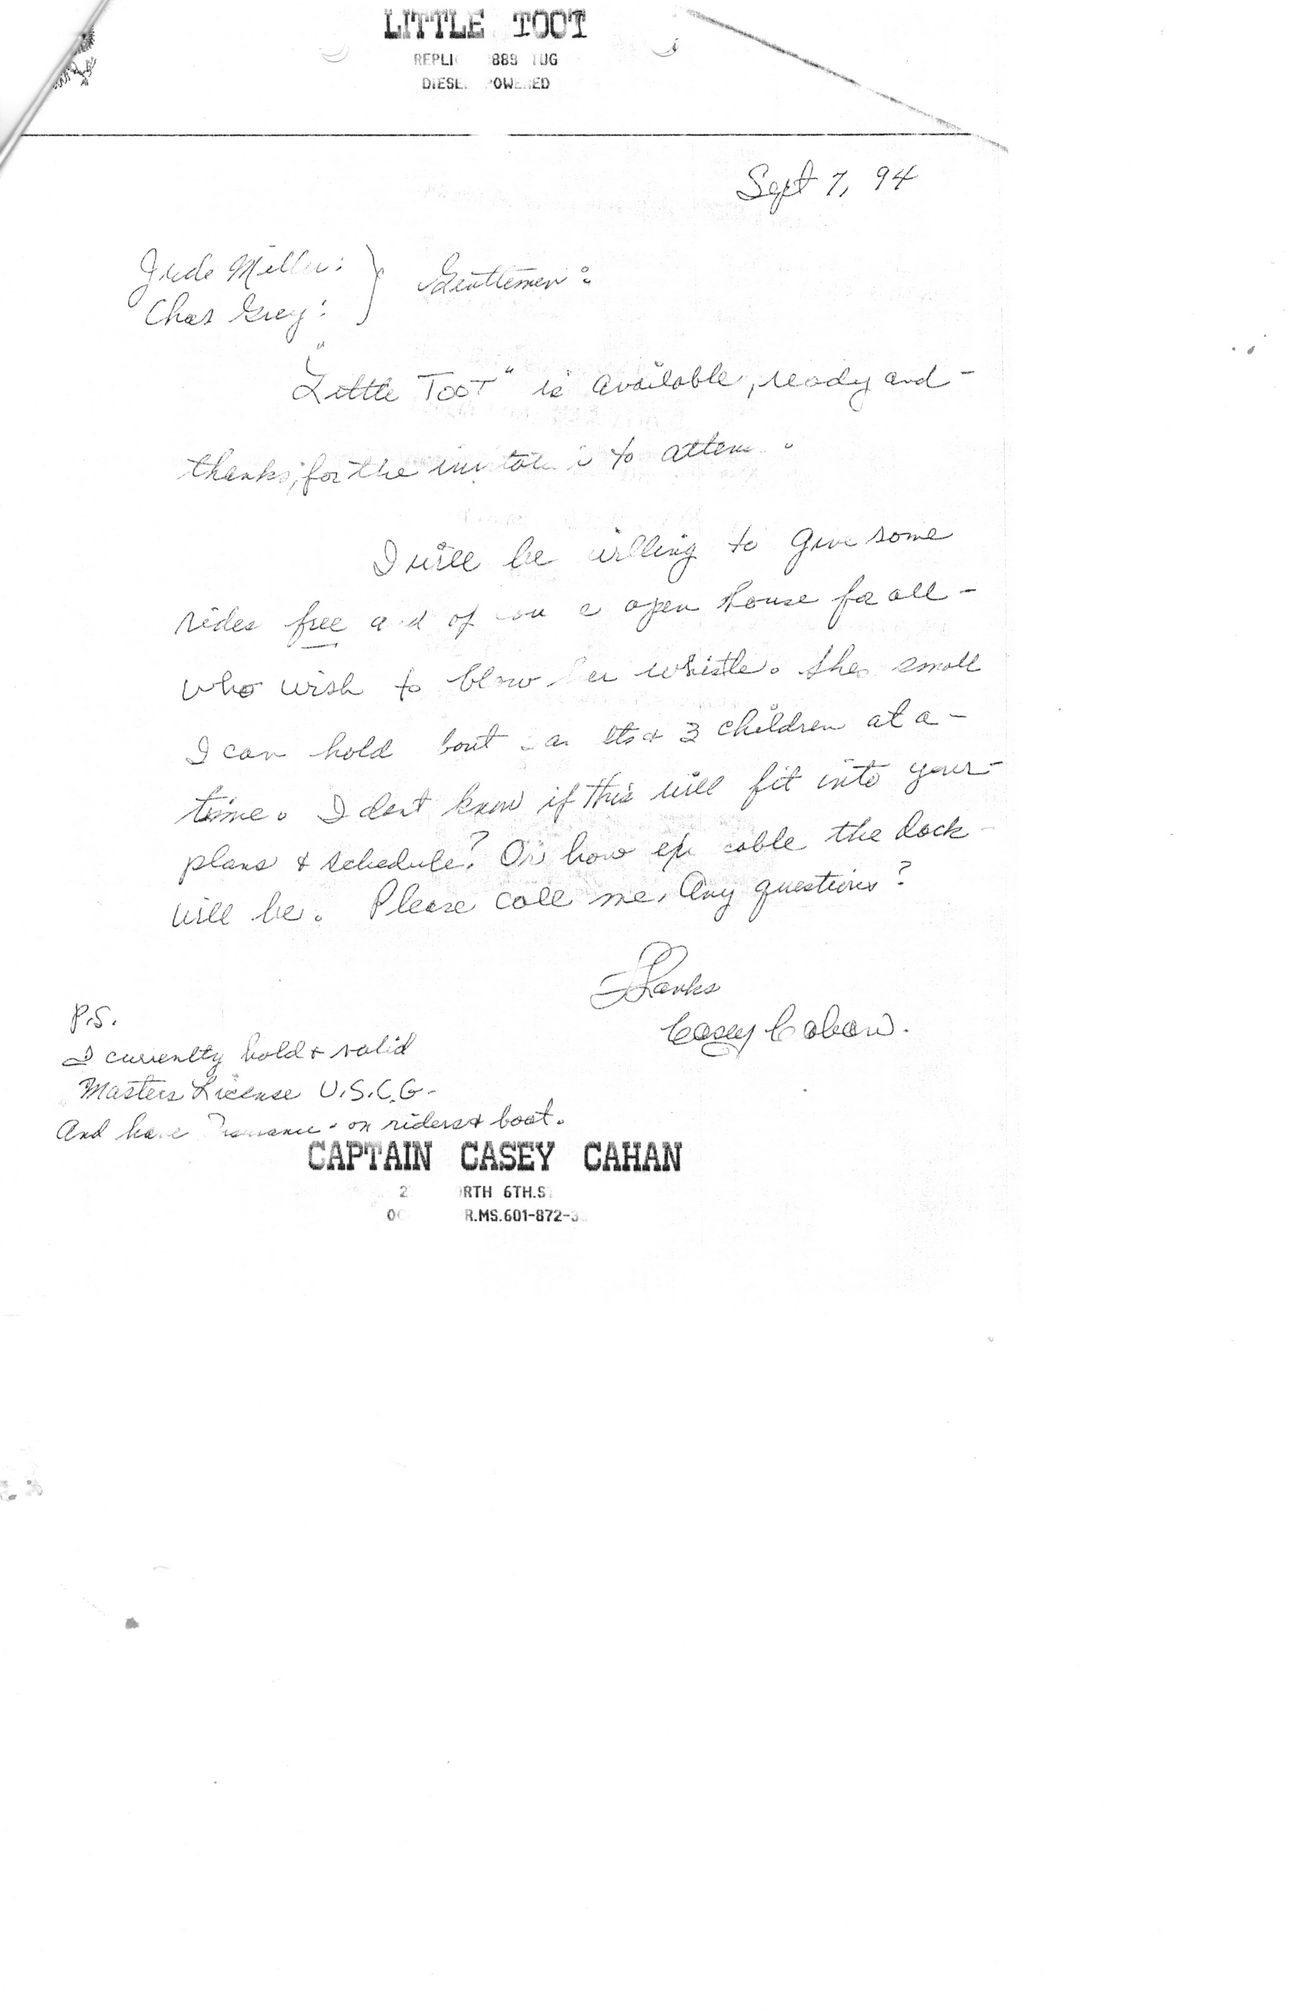 LITTLE TOOT
REPLI 889 TUG
DIESEL POWERED
Sept 7, 94
Jude Miller:
Chas Grey: } Gentlemen:
"Little Toot" is available, ready and -
thanks, for the to
I will be willing to give some
rides free and of open house for all -
who wish to blow her whistle. Shes small
I can hold bout & 3 children at a -
time. I dont know if this will fit into your -
plans & schedule? Or how the dock -
will be. Please call me. Any questions?
Thanks
Casey Cahan.
P.S.
I currently hold & valid
Masters License U.S.C.G. -
And have Insurance - on riders & boat.
CAPTAIN CASEY CAHAN
2 RTH 6TH.S
OC R.MS.601-872-3